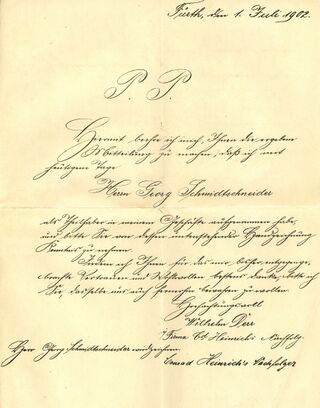 Fürth, den 1. Juli 1902.
P. P.
Hiermit beehre ich mich, Ihnen die ergebene
Mitteilung zu machen, daß ich mit
heutigem Tage
Herrn Georg Schmidtschneider
als Theilhaber in meinem Geschäfte aufgenommen habe,
und bitte Sie von dessen untenstehender Handzeichnung
Kenntnis zu nehmen.
Indem ich Ihnen für das mir bisher entgegenge-
brachte Vertrauen und Wohlwollen bestens danke, bitte ich
Sie, dasselbe uns auch fernerhin bewahren zu wollen.
Hochachtungsvoll
Wilhelm Derr
Firma Heinrich's Nachfolg.
Herr Georg Schmidtschneider wird zeichnen:
Conrad Heinrich's Nachfolger